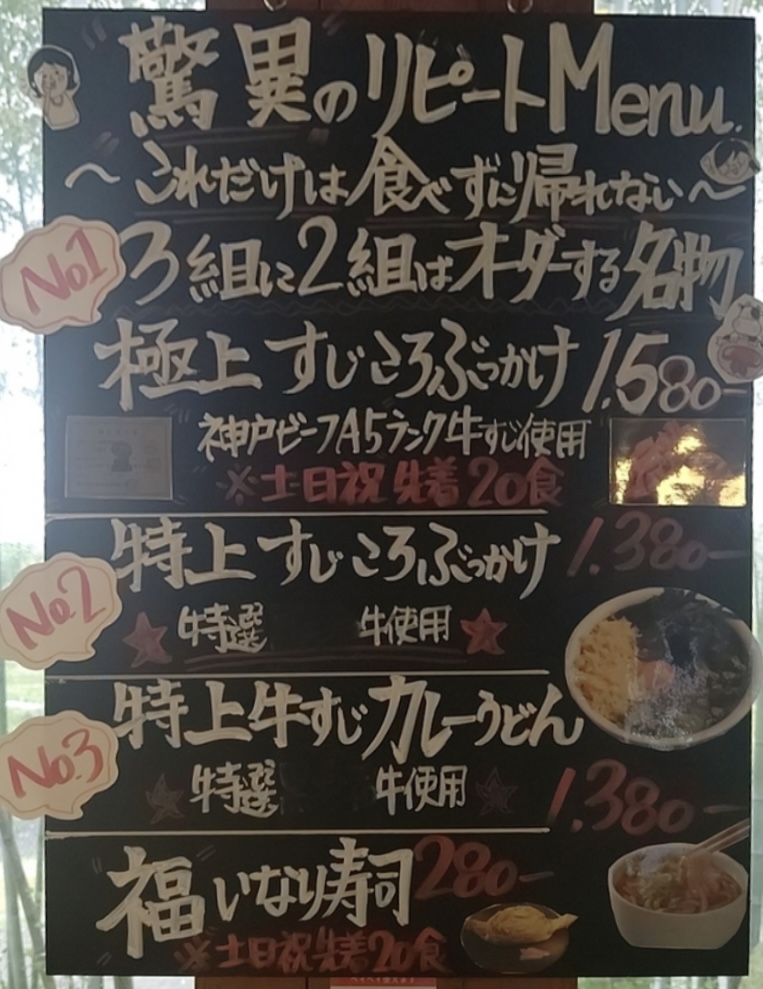 驚異のリピートMenu.
〜これだけは食べずに帰れない〜
No.1
3組に2組はオーダーする名物
極上すじころぶっかけ 1.580-
神戸ビーフA5ランク牛すじ使用
※土日祝先着20食
No.2
特上すじころぶっかけ 1.380-
★特選 牛使用★
No.3
特上牛すじカレーうどん
★特選 牛使用★
1.380-
"福"いなり寿司 280-
※土日祝先着20食